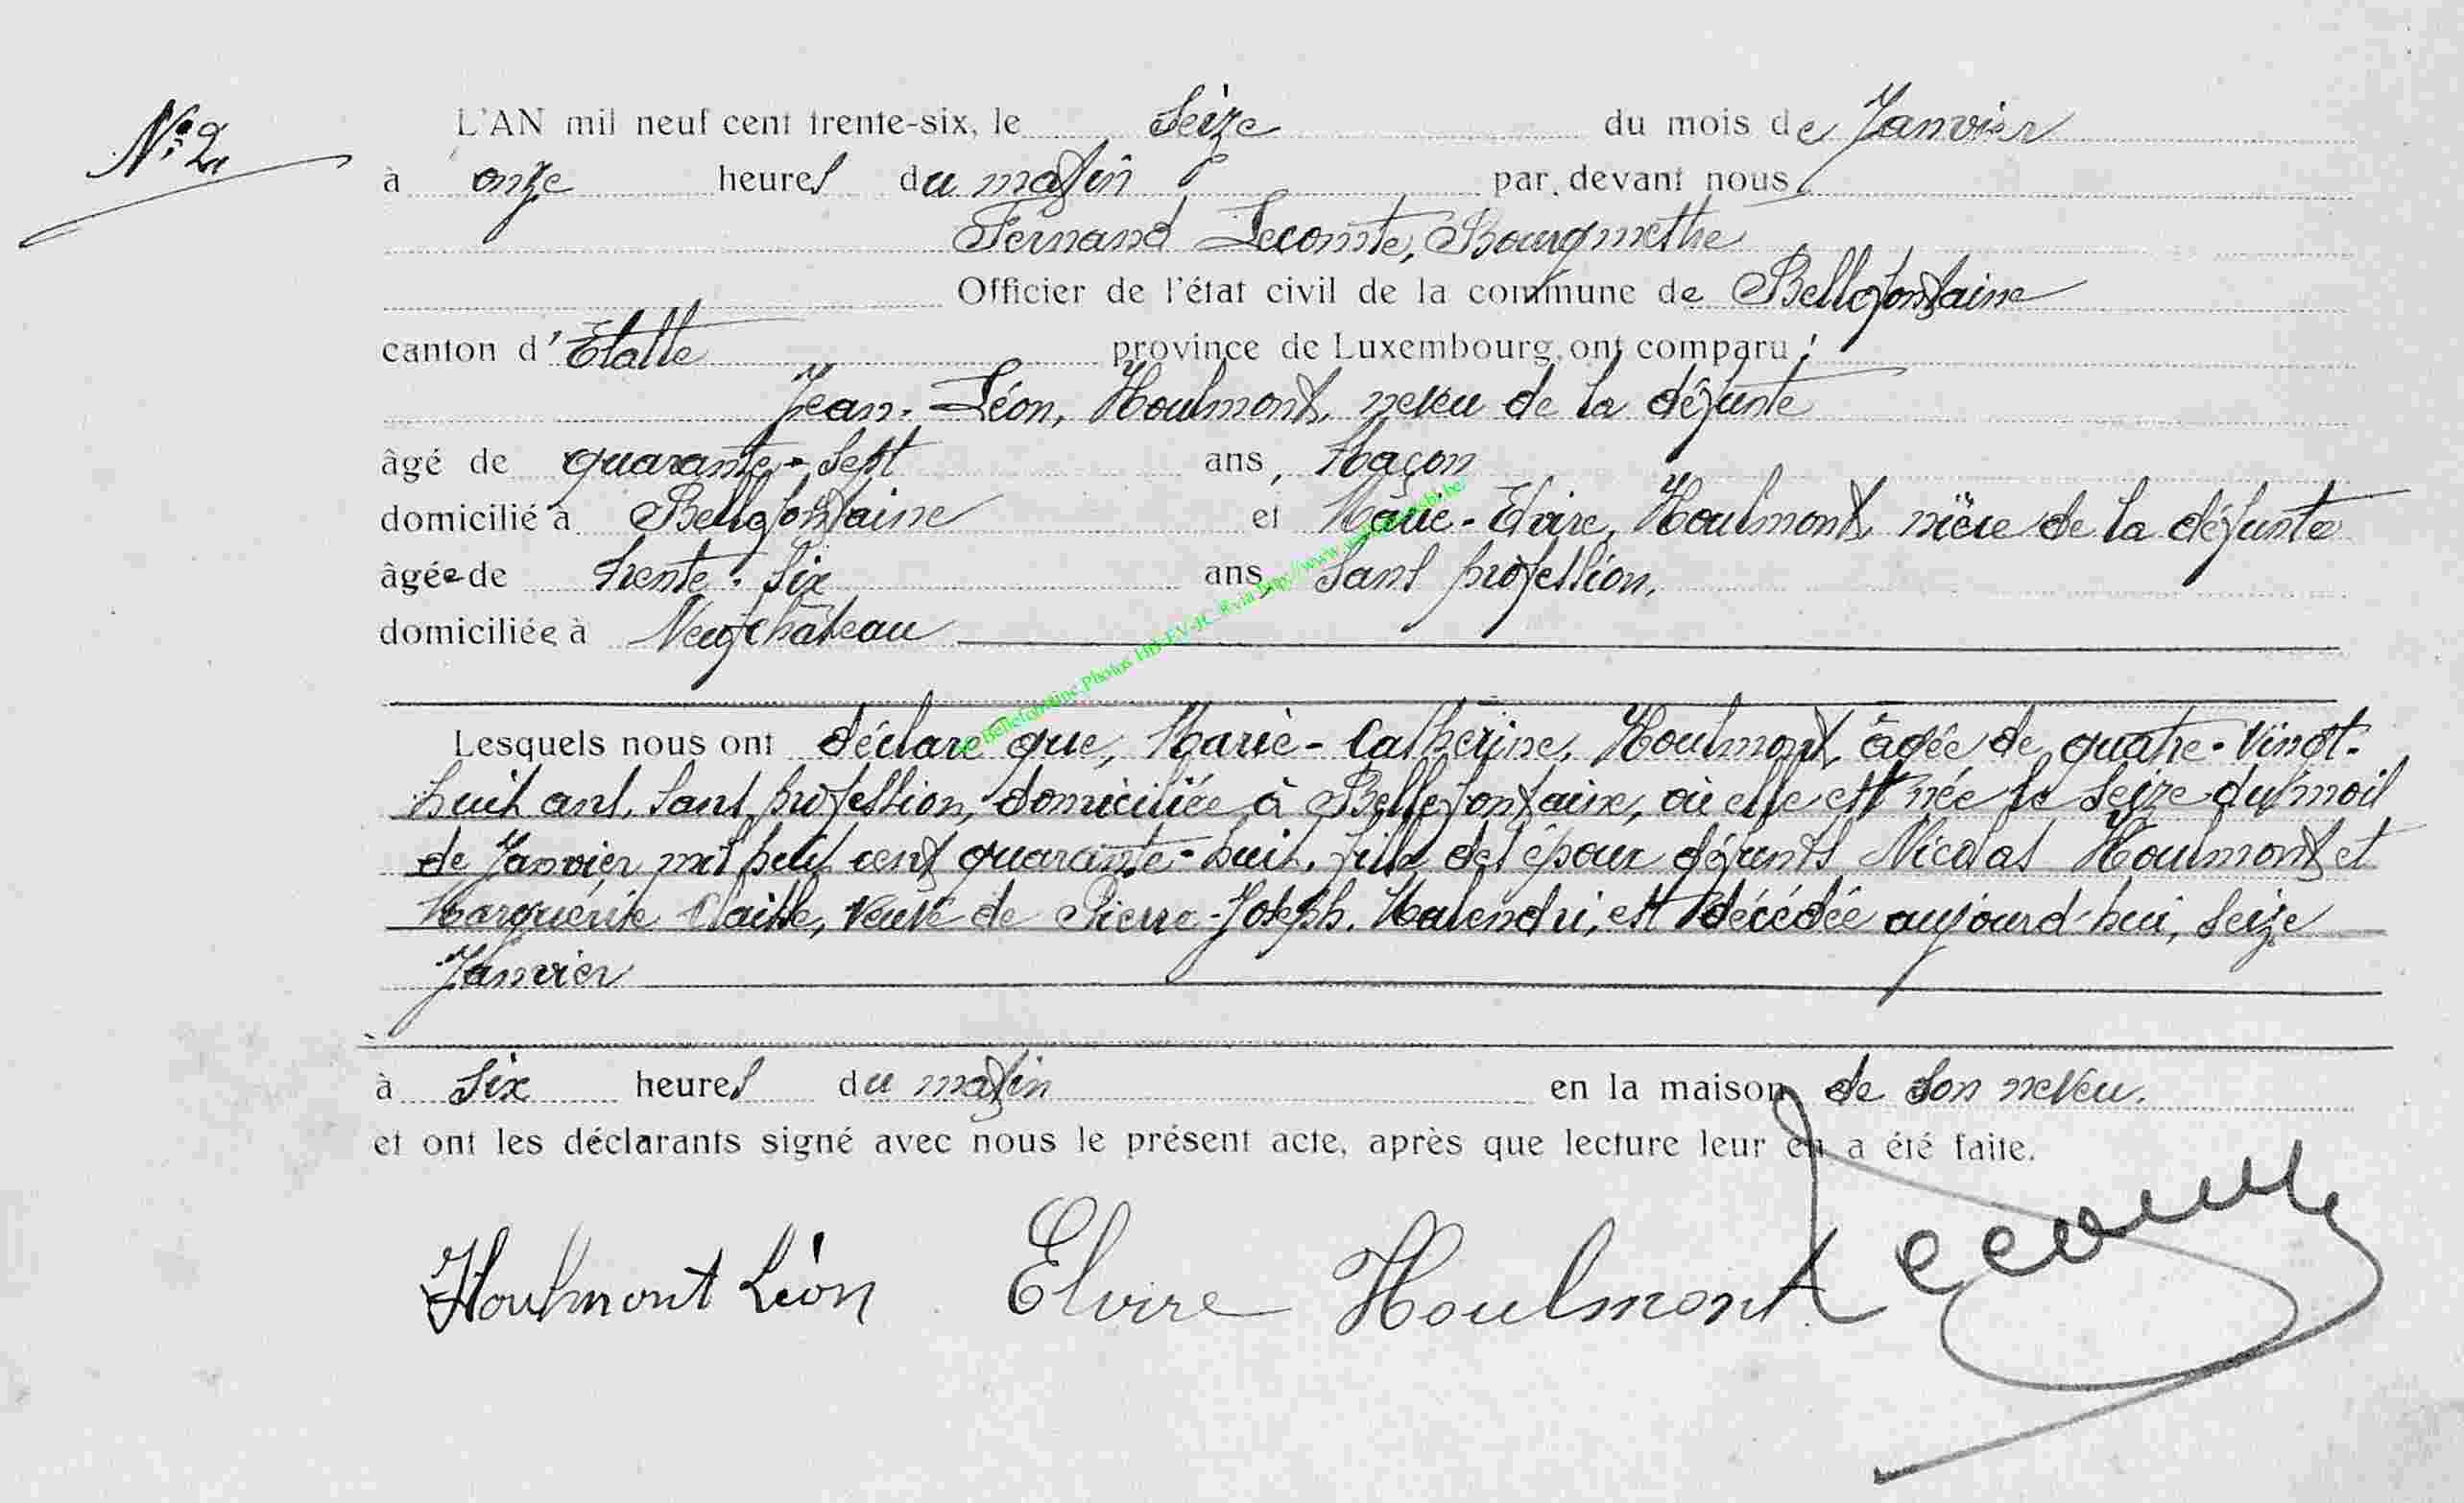 N° 2
L'AN mil neuf cent trente-six, le seize du mois de Janvier
à onze heures du matin par devant nous
Fernand Lecomte, Bourgmestre
Officier de l'état civil de la commune de Bellefontaine
canton d'Etalle province de Luxembourg, ont comparu :
Jean-Léon, Houlmont, neveu de la défunte
âgé de quarante-sept ans, Maçon
domicilié à Bellefontaine et Marie-Elvire, Houlmont, nièce de la défunte
âgée de trente-six ans, sans profession.
domiciliée à Neufchâteau
Lesquels nous ont déclaré que, Marie-Catherine, Houlmont, âgée de quatre-vingt-
huit ans, sans profession, domiciliée à Bellefontaine, où elle est née le seize du mois
de Janvier mil huit cent quarante-huit, fille des époux défunts Nicolas Houlmont et
Marguerite Claisse, veuve de Pierre-Joseph, est décédée aujourd'hui, seize
Janvier
à six heures du matin en la maison de son neveu.
et ont les déclarants signé avec nous le présent acte, après que lecture leur en a été faite.
Houlmont Léon Elvire Houlmont Lecomte
Bellefontaine Photos via http://www.